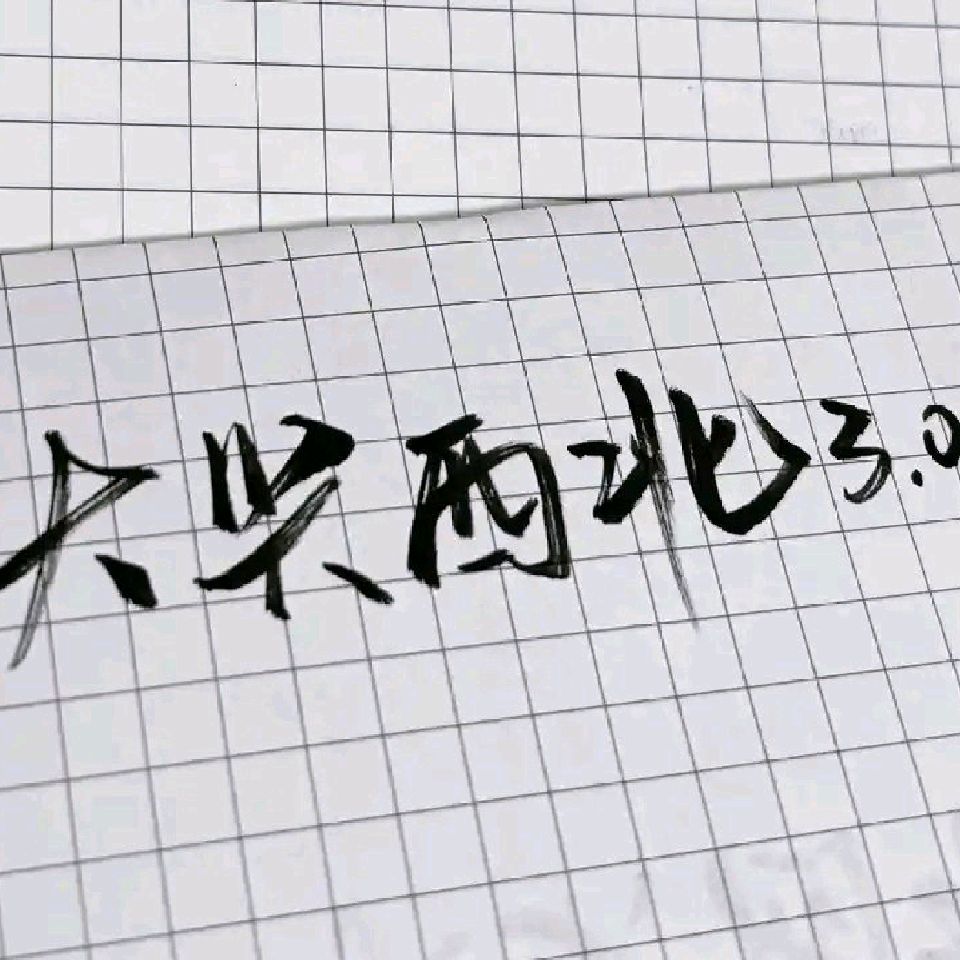 大美西北3.0